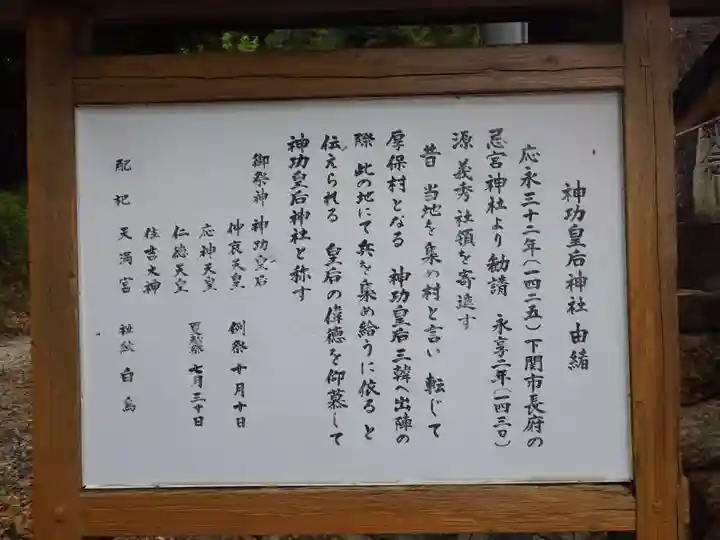 神功皇后神社 由緒
応永三十二年(一四二五)下関市長府の
忌宮神社より勧請 永享二年(一四三〇)
源 義秀 社領を寄進す
昔 当地を集め村と言い 転じて
厚保村となる 神功皇后三韓へ出陣の
際 此の地にて兵を集め給うに依ると
伝えられる 皇后の偉徳を仰慕して
神功皇后神社と称す
御祭神 神功皇后
仲哀天皇 例祭 十月十日
応神天皇
仁徳天皇 夏越祭 七月三十日
住吉大神
配祀 天満宮 社紋 白鳥